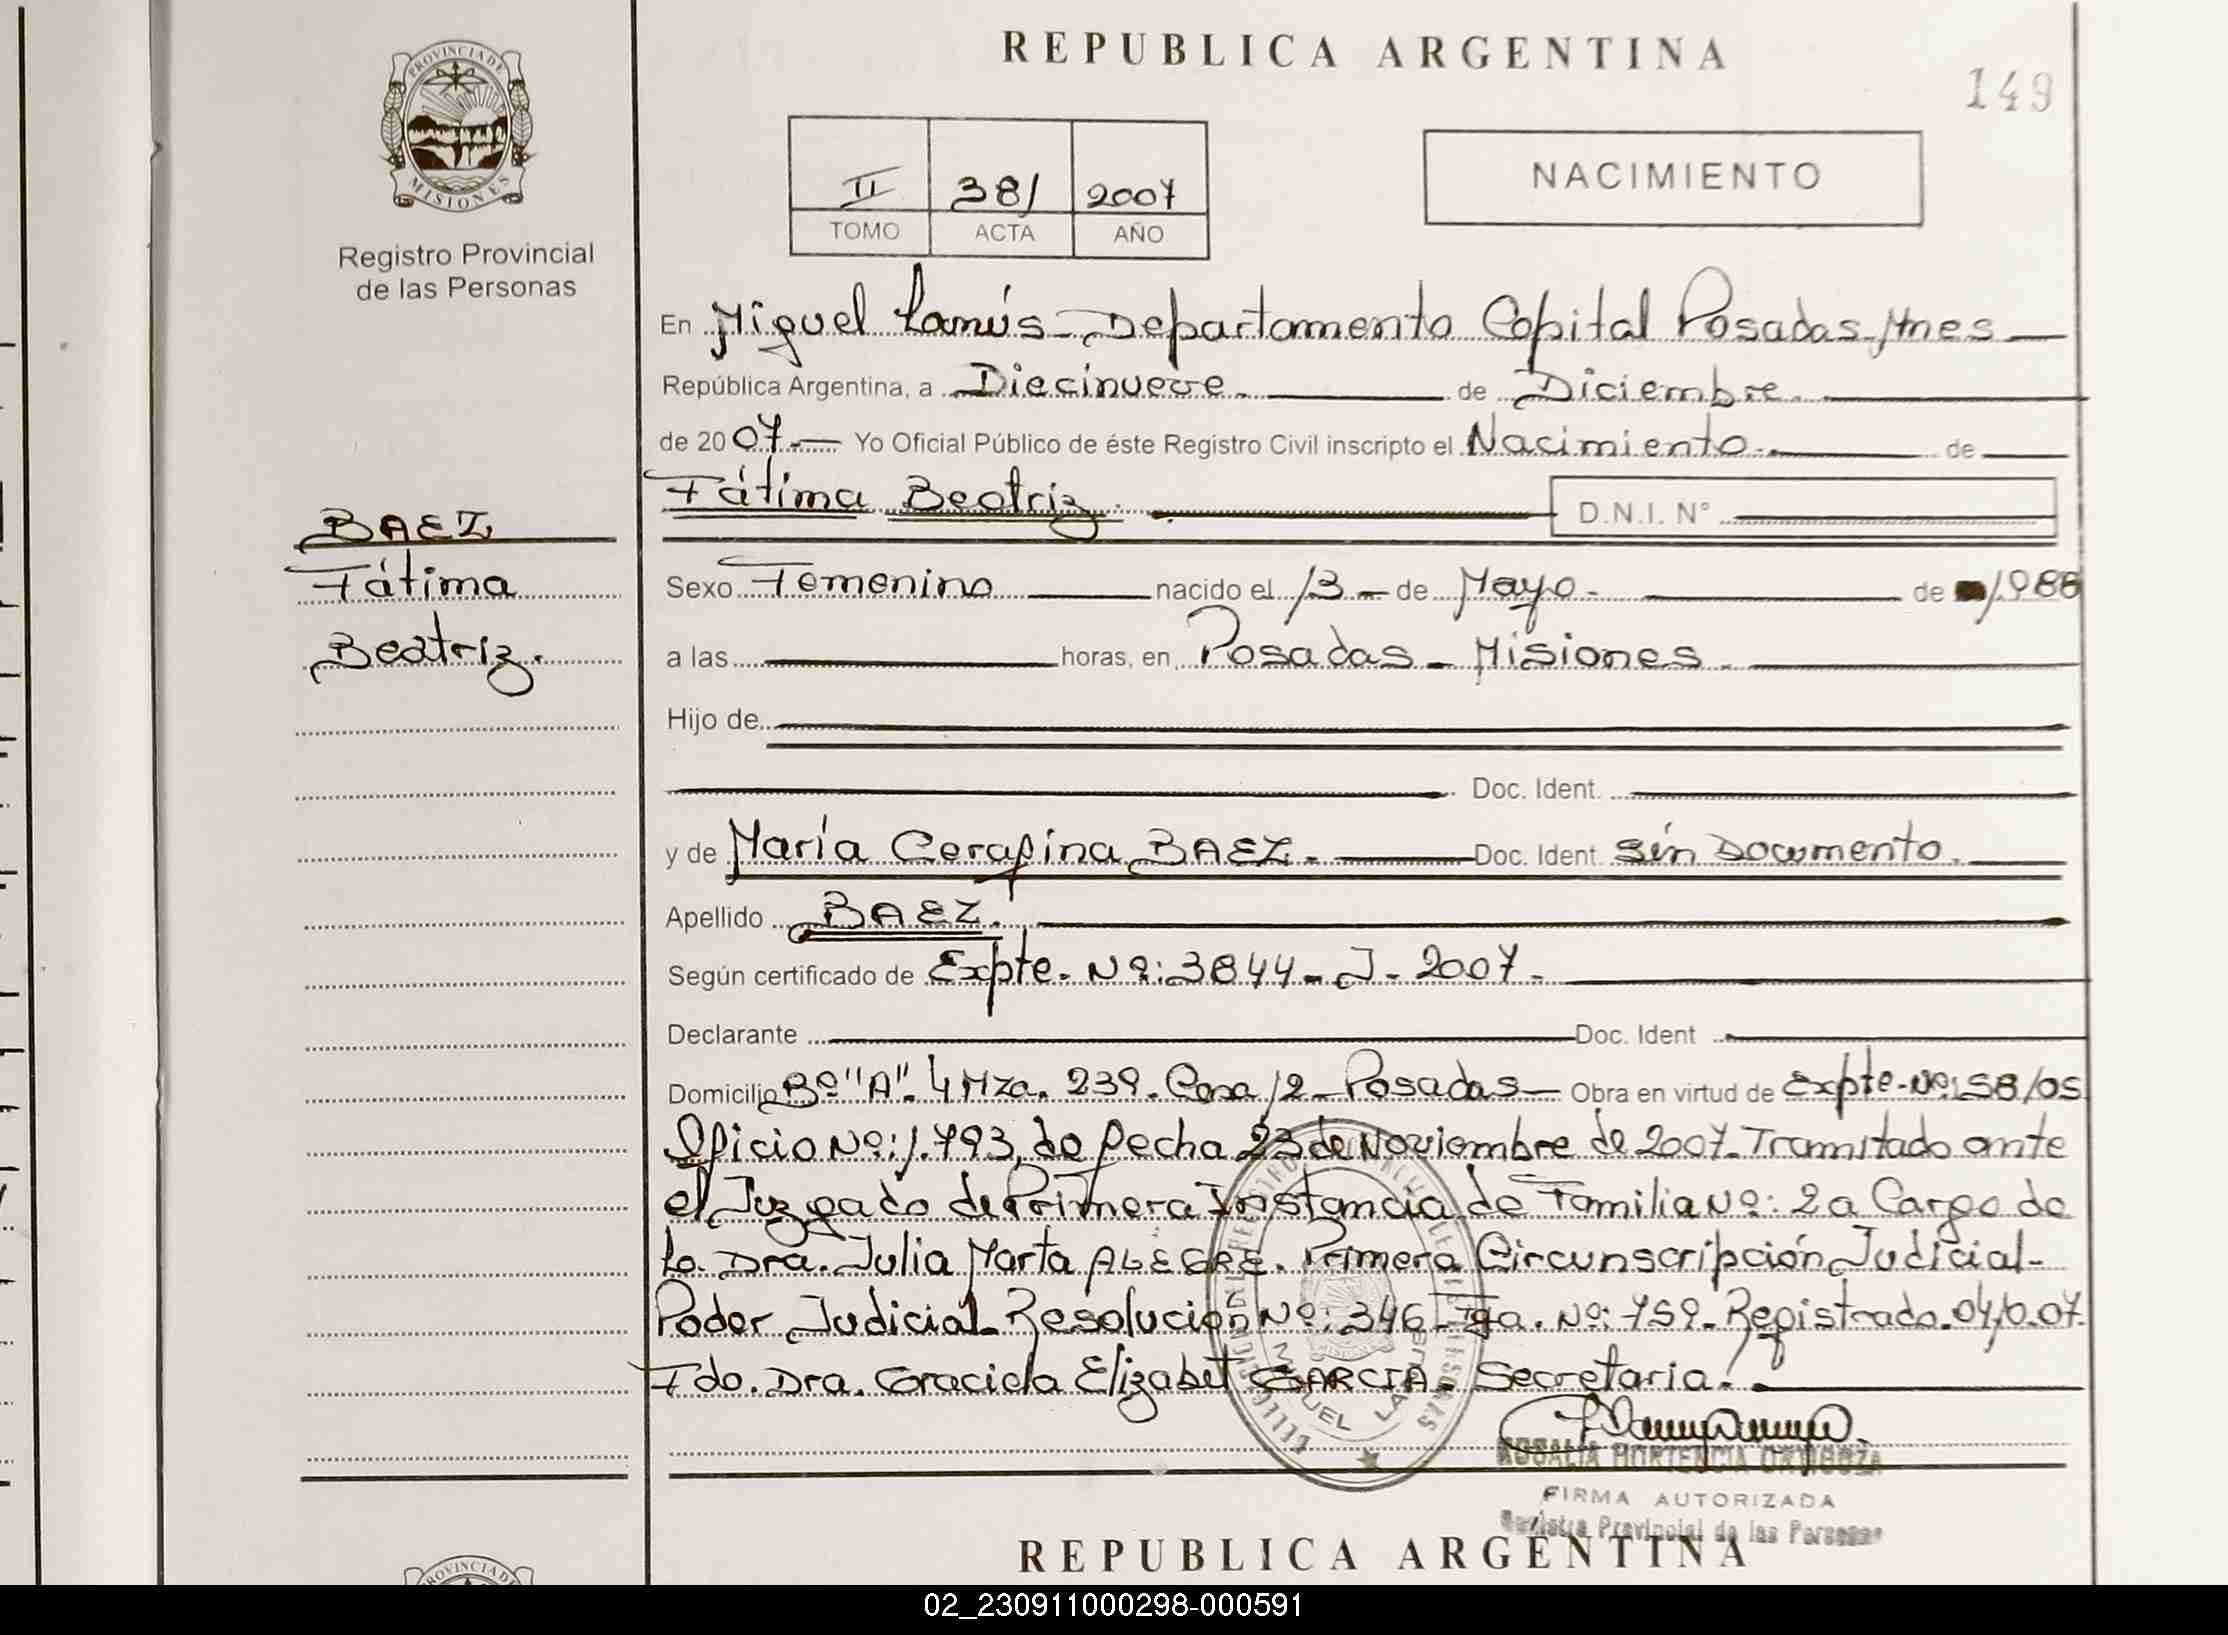 REPUBLICA ARGENTINA
149
PROVINCIA DE
MISIONES
Registro Provincial
de las Personas
II 381 2007
TOMO ACTA AÑO
NACIMIENTO
En Miguel Lanús - Departamento Capital Posadas - Mnes
República Argentina, a Diecinueve. de Diciembre.
de 2007.- Yo Oficial Público de éste Registro Civil inscripto el Nacimiento. de
Fátima Beatriz. D.N.I. N°
BAEZ
Fátima
Beatriz.
Sexo Femenino nacido el 13 - de Mayo. de 1.988
a las horas, en Posadas - Misiones.
Hijo de
Doc. Ident.
y de María Cerafina BAEZ. Doc. Ident Sin Documento.
Apellido BAEZ.
Según certificado de Expte. Nº: 3844 - J - 2007.
Declarante Doc. Ident
Domicilio Bº "A". 4 Mza. 239. Casa 12 - Posadas - Obra en virtud de Expte. Nº: 58/05
Oficio Nº: 1.793, de fecha 23 de Noviembre de 2007. Tramitado ante
el Juzgado de Primera Instancia de Familia Nº: 2 a Cargo de
la Dra. Julia Marta ALEGRE. Primera Circunscripción Judicial -
Poder Judicial. Resolución Nº: 346 - Nº: 759. Registrado.
Fdo. Dra. Graciela Elizabet GARCIA. Secretaria.
ROSALIA HORTENCIA ORTIGOZA
FIRMA AUTORIZADA
Registro Provincial de las Personas
REPUBLICA ARGENTINA
PROVINCIA D
02_230911000298-000591